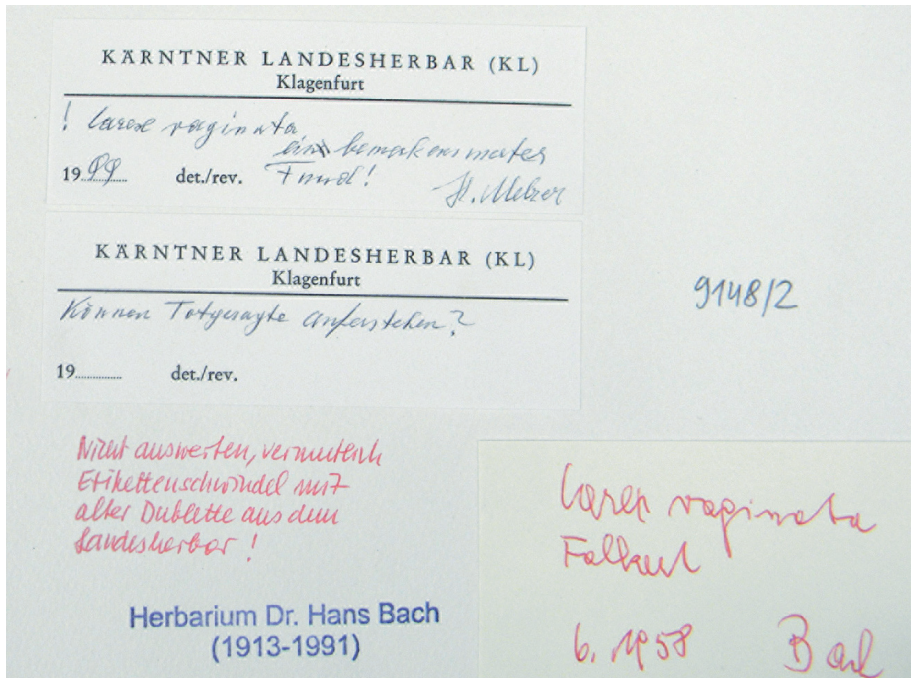 KÄRNTNER LANDESHERBAR (KL)
Klagenfurt
! Carex vaginata
ein bemerkenswerter
1999 det./rev. Fund! H. Melzer
KÄRNTNER LANDESHERBAR (KL)
Klagenfurt
Können Totgesagte auferstehen?
19 det./rev.
9148/2
Nicht auswerten, vermutlich
Etikettenschwindel mit
alter Dublette aus dem
Landesherbar !
Herbarium Dr. Hans Bach
(1913-1991)
Carex vaginata
Falkert
6. 1958 Bach